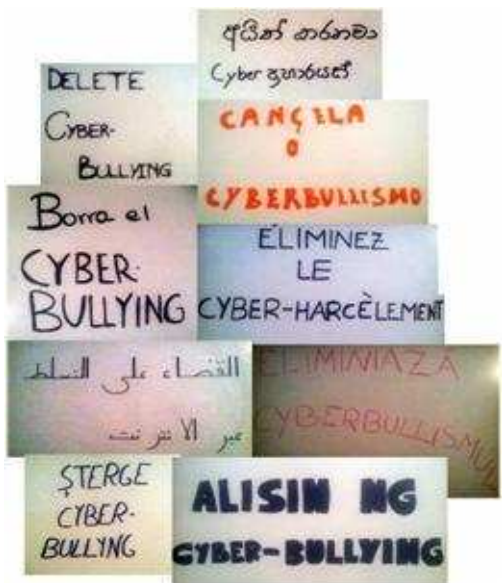 අයින් කරනවා
Cyber ප්‍රහාරයෙන්
DELETE
CYBER-
BULLYING
CANÇELA
O
CYBERBULLISMO
Borra el
CYBER-
BULLYING
ÉLIMINEZ
LE
CYBER-HARCÈLEMENT
القضاء على التسلط
عبر الانترنت
ELIMINIAZĂ
CYBERBULLISMUL
ȘTERGE
CYBER-
BULLYNG
ALISIN NG
CYBER-BULLYING